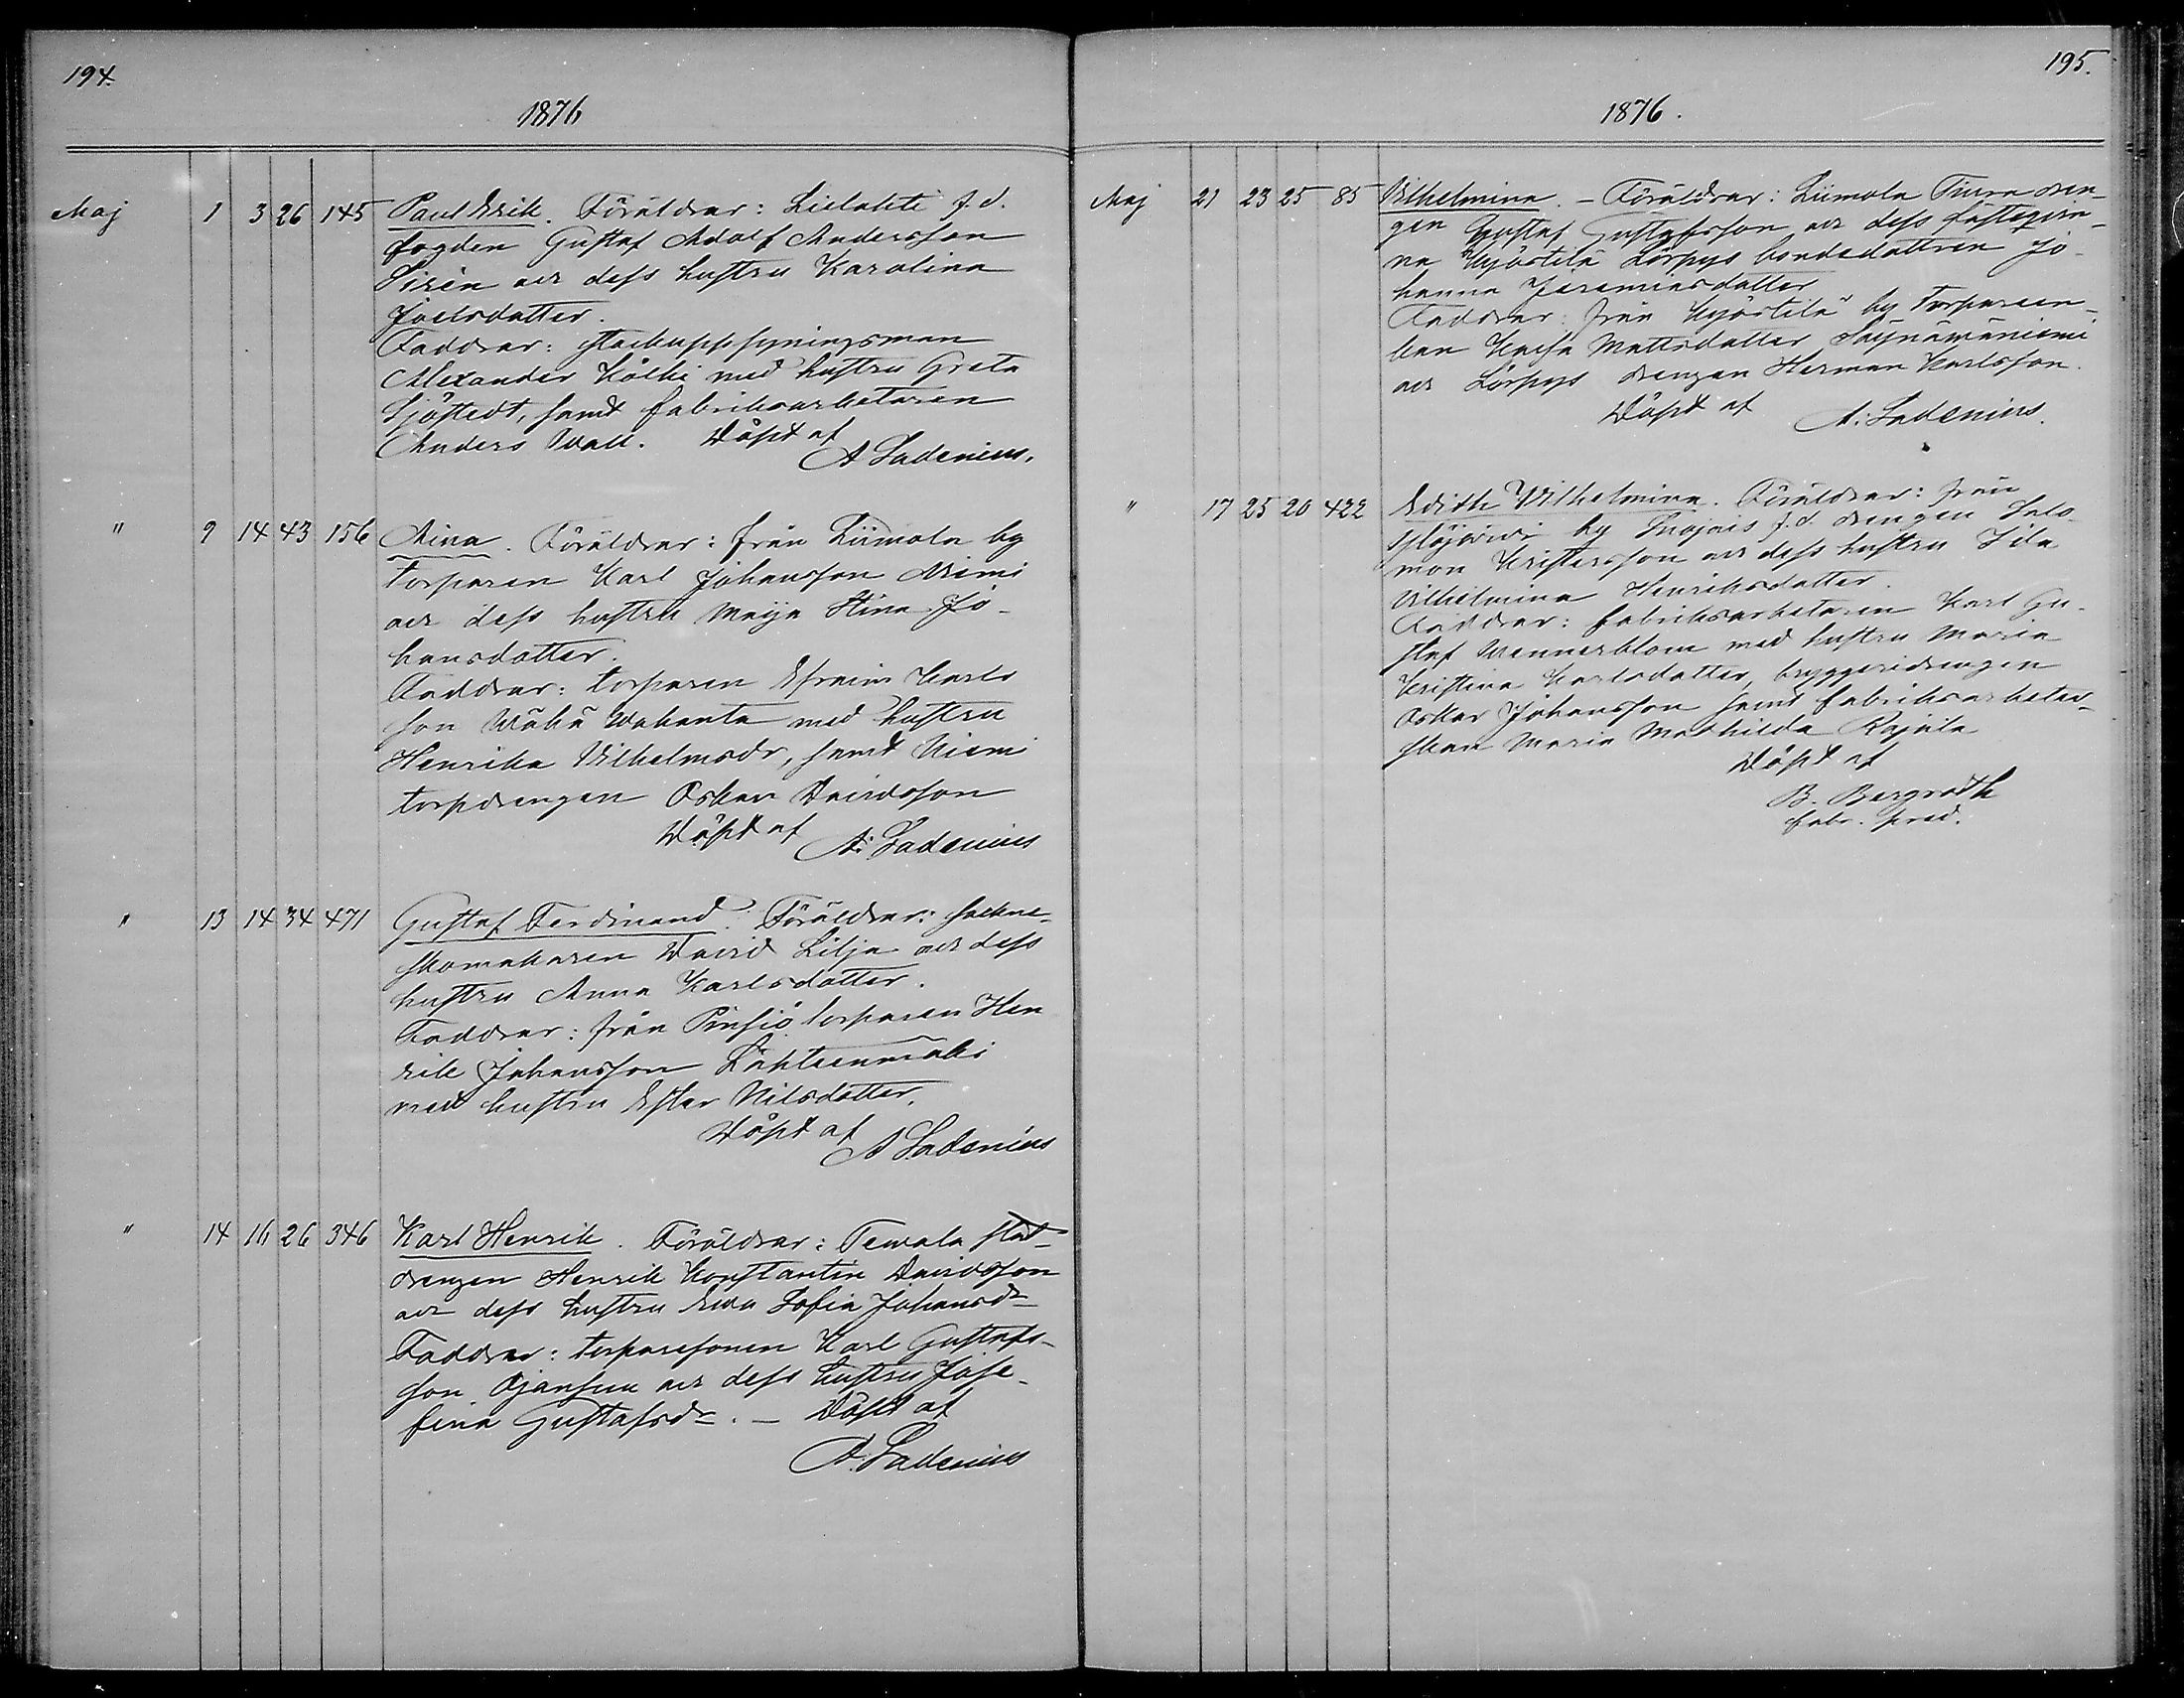 194.
1876
Maj 1 3 26 145 Paul Erik. Föräldrar: Lielahti f.d.
fogden Gustaf Adolf Andersson
Sirén och dess hustru Karolina
Joelsdotter.
Faddrar: stockuppsyningsman
Alexander Kölhi med hustru Greta
Sjöstedt, samt fabriksarbetaren
Anders Wall. Döpt af
A Ladenius.
" 9 14 43 156 Mina. Föräldrar: från Liimola by
torparen Karl Johansson Niemi
och dess hustru Maija Stina Jo-
hansdotter.
Faddrar: torparen Efraim Karls
son Wähä Wahanta med hustru
Henrika Vilhelmsdr, samt Niemi
torpdrengen Oskar Davidsson
Döpt af A. Ladenius
" 13 14 34 471 Gustaf Ferdinand. Föräldrar: sockne-
skomakaren David Lilja och dess
hustru Anna Karlsdotter.
Faddrar: från Pinsiö torparen Hen
rik Johansson Lähteenmäki
med hustru Ester Nilsdotter.
Döpt af A Ladenius
" 14 16 26 346 Karl Henrik. Föräldrar: Tewala stat-
drengen Henrik Konstantin Davidsson
och dess hustru Ewa Sofia Johansdr
Faddrar: torparesonen Karl Gustafs-
son Ojansuu och dess hustru Jose-
fina Gustafsdr. — Döpt af
A. Ladenius
195.
1876.
Maj 21 23 25 85 Vilhelmina. — Föräldrar: Liimola Tiura dren-
gen Gustaf Gustafsson och dess fästeqvin-
na Kyöstilä Lörpys bondedottren Jo-
hanna Jeremiasdotter
Faddrar: från Kyöstilä by torpareen-
kan Kaisa Mattsdotter Säynäwäniemi
och Lörpys drengen Herman Karlsson.
Döpt af A. Ladenius.
" 17 25 20 422 Edith Vilhelmina. Föräldrar: från
Ylöjärvi by f.d. drengen Salo-
mon Kristersson och dess hustru Ida
Vilhelmina Henriksdotter.
Faddrar: fabriksarbetaren Karl Gu-
staf Wennerblom med hustru Maria
Kristina Karlsdotter, bryggeridrengen
Oskar Johansson samt fabriksarbeter-
skan Maria Mathilda Rajala
Döpt af
B. Bergroth
fabr. pred.